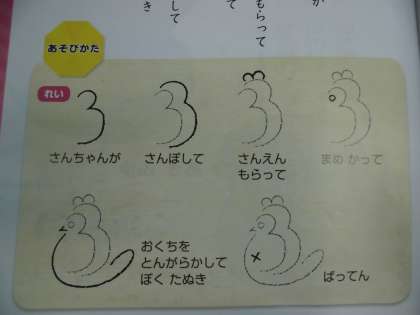 が
もらって
て
して
き
あそびかた
れい
さんちゃんが
さんぽして
さんえん
もらって
まめ かって
おくちを
とんがらかして
ぼく たぬき
ばってん